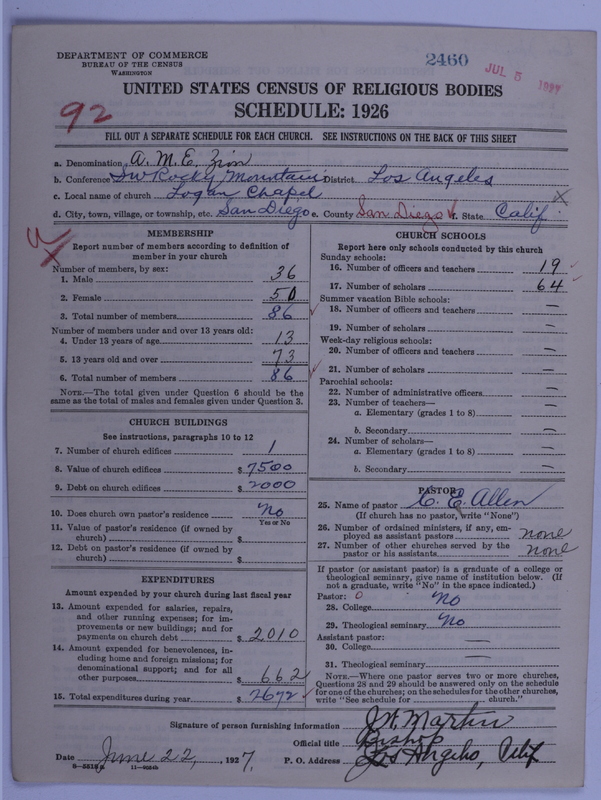 DEPARTMENT OF COMMERCE
BUREAU OF THE CENSUS
WASHINGTON
2460
JUL 5 1927
92
UNITED STATES CENSUS OF RELIGIOUS BODIES
SCHEDULE: 1926
FILL OUT A SEPARATE SCHEDULE FOR EACH CHURCH. SEE INSTRUCTIONS ON THE BACK OF THIS SHEET
a. Denomination A. M. E. Zion
b. Conference SW Rocky Mountain District Los Angeles
c. Local name of church Logan Chapel
d. City, town, village, or township, etc. San Diego e. County San Diego f. State Calif.
MEMBERSHIP
Report number of members according to definition of
member in your church
Number of members, by sex:
1. Male 36
2. Female 50
3. Total number of members 86
Number of members under and over 13 years old:
4. Under 13 years of age 13
5. 13 years old and over 73
6. Total number of members 86
NOTE.—The total given under Question 6 should be
the same as the total of males and females given under Question 3.
CHURCH BUILDINGS
See instructions, paragraphs 10 to 12
7. Number of church edifices 1
8. Value of church edifices $ 7500
9. Debt on church edifices $ 2000
10. Does church own pastor's residence No
Yes or No
11. Value of pastor's residence (if owned by
church) $
12. Debt on pastor's residence (if owned by
church) $
EXPENDITURES
Amount expended by your church during last fiscal year
13. Amount expended for salaries, repairs,
and other running expenses; for im-
provements or new buildings; and for
payments on church debt $ 2010
14. Amount expended for benevolences, in-
cluding home and foreign missions; for
denominational support; and for all
other purposes $ 662
15. Total expenditures during year $ 2672
CHURCH SCHOOLS
Report here only schools conducted by this church
Sunday schools:
16. Number of officers and teachers 19
17. Number of scholars 64
Summer vacation Bible schools:
18. Number of officers and teachers —
19. Number of scholars —
Week-day religious schools:
20. Number of officers and teachers —
21. Number of scholars —
Parochial schools:
22. Number of administrative officers —
23. Number of teachers—
a. Elementary (grades 1 to 8) —
b. Secondary —
24. Number of scholars—
a. Elementary (grades 1 to 8) —
b. Secondary —
PASTOR
25. Name of pastor C. E. Allen
(If church has no pastor, write "None")
26. Number of ordained ministers, if any, em-
ployed as assistant pastors none
27. Number of other churches served by the
pastor or his assistants none
If pastor (or assistant pastor) is a graduate of a college or
theological seminary, give name of institution below. (If
not a graduate, write "No" in the space indicated.)
Pastor: 0
28. College No
29. Theological seminary No
Assistant pastor:
30. College —
31. Theological seminary —
NOTE.—Where one pastor serves two or more churches,
Questions 28 and 29 should be answered only on the schedule
for one of the churches; on the schedules for the other churches,
write "See schedule for church."
Signature of person furnishing information J. W. Martin
Official title Bishop
Date June 22, 1927. P. O. Address Los Angeles, Calif